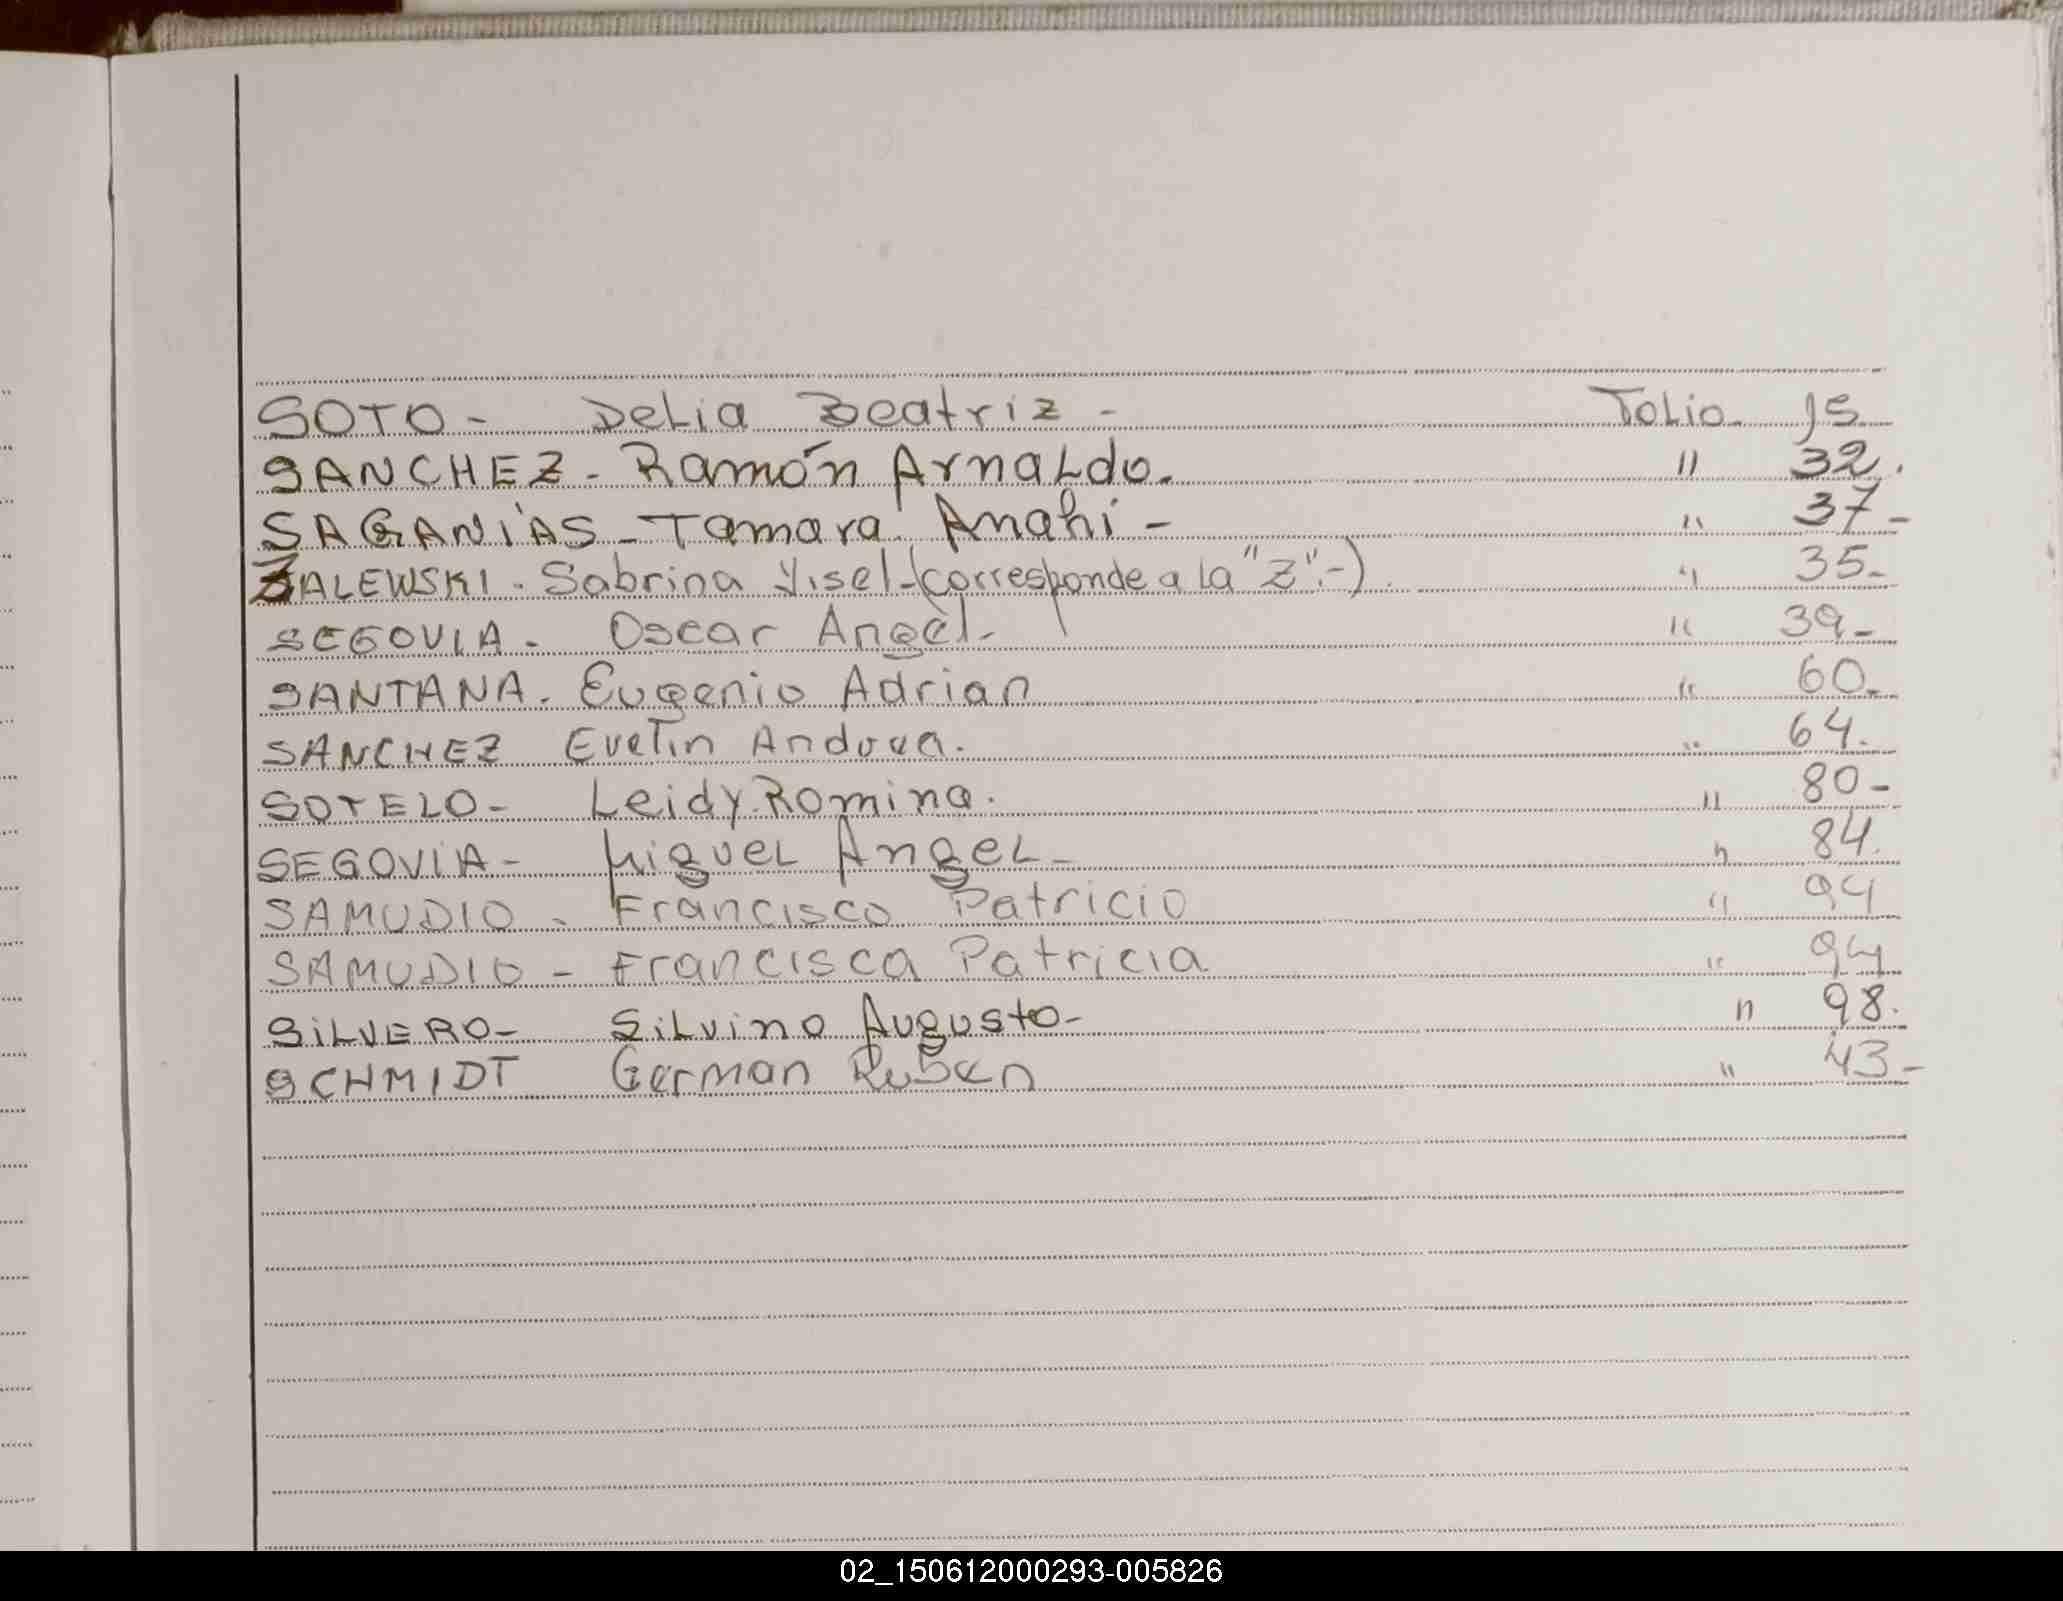 SOTO - Delia Beatriz - Folio 15
SANCHEZ - Ramón Arnaldo. " 32.
SAGANIAS - Tamara Anahi - " 37 -
ZALEWSKI - Sabrina Yisel - (corresponde a la "Z".-) " 35-
SEGOVIA - Oscar Angel- " 39-
SANTANA. Eugenio Adrian " 60.
SANCHEZ Evelin " 64.
SOTELO - Leidy Romina. " 80-
SEGOVIA - Miguel Angel - " 84.
SAMUDIO - Francisco Patricio " 94
SAMUDIO - Francisca Patricia " 94
SILVERO - Silvino Augusto - " 98.
SCHMIDT German Ruben " 43-
02_150612000293-005826